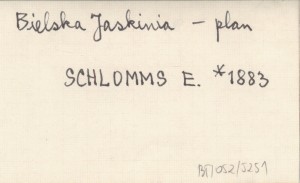 Bielska Jaskinia – plan
SCHLOMMS E. *1883
BT/052/5251